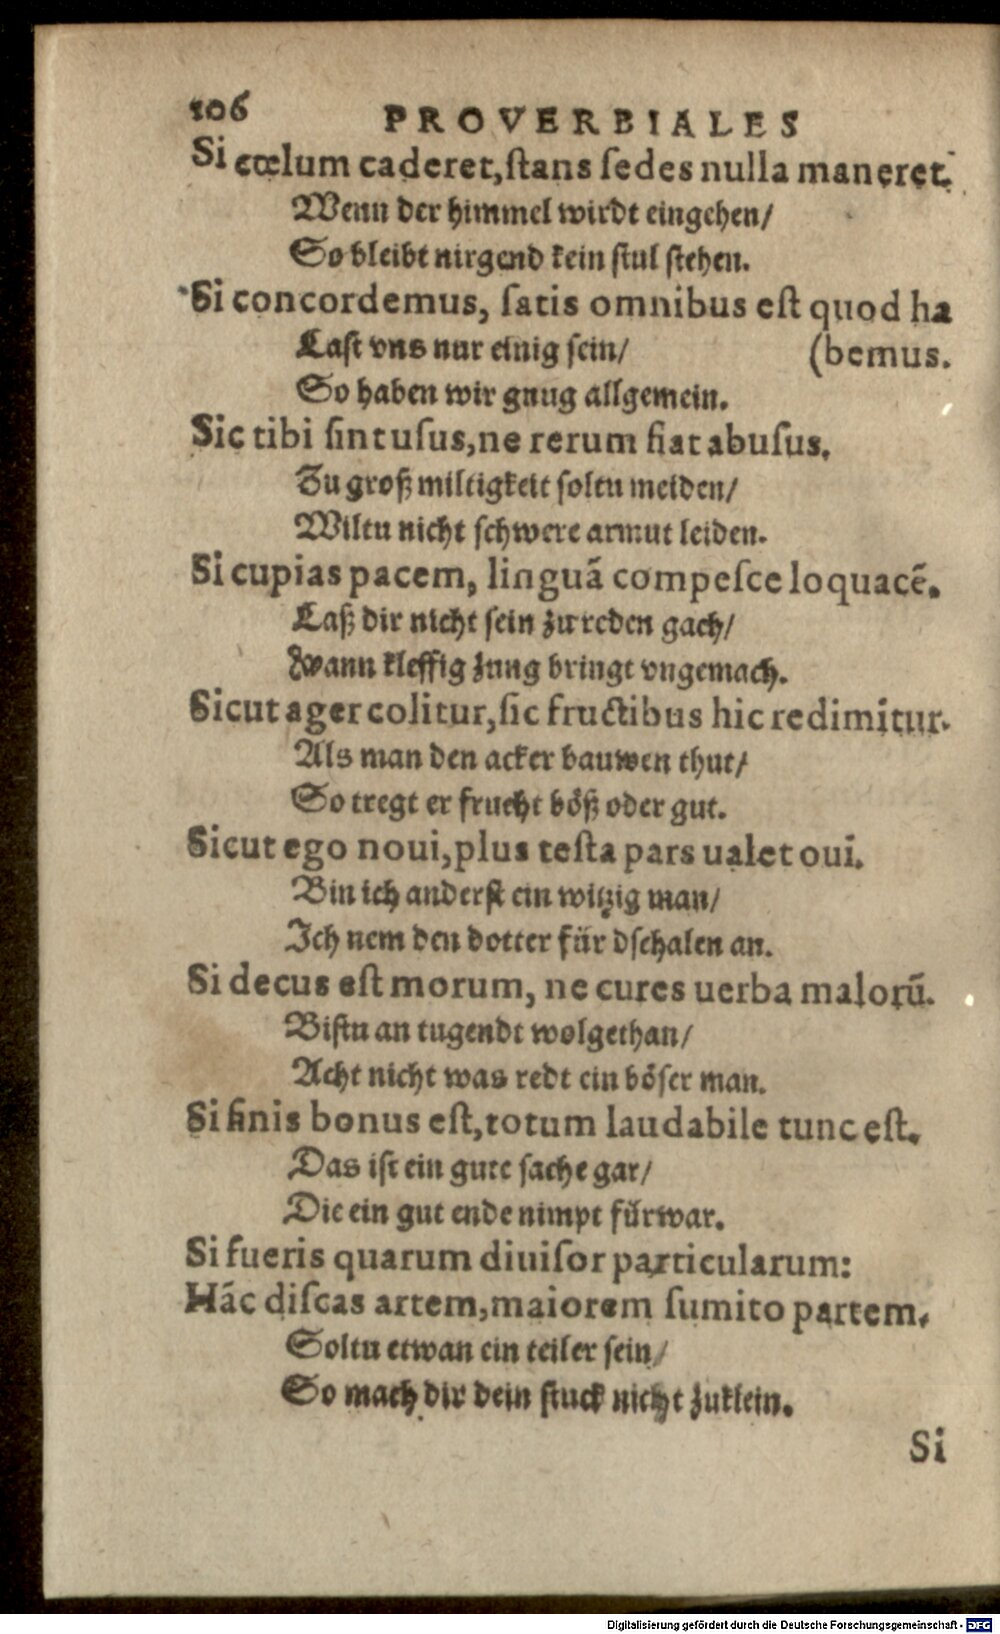 106 PROVERBIALES
Si cœlum caderet, ſtans ſedes nulla maneret.
Wenn der himmel wirdt eingehen/
So bleibt nirgend kein ſtul ſtehen.
Si concordemus, ſatis omnibus eſt quod ha
Laſt vns nur einig ſein/ (bemus.
So haben wir gnug allgemein.
Sic tibi ſint uſus, ne rerum fiat abuſus.
Zu groß miltigkeit ſoltu meiden/
Wiltu nicht ſchwere armut leiden.
Si cupias pacem, linguã compeſce loquacẽ.
Laß dir nicht ſein zu reden gach/
Wann kleffig zung bringt vngemach.
Sicut ager colitur, ſic fructibus hic redimitur.
Als man den acker bauwen thut/
So tregt er frucht böß oder gut.
Sicut ego noui, plus teſta pars ualet oui.
Bin ich anderſt ein witzig man/
Ich nem den dotter für dſchalen an.
Si decus eſt morum, ne cures uerba malorũ.
Biſtu an tugendt wolgethan/
Acht nicht was redt ein böſer man.
Si finis bonus eſt, totum laudabile tunc eſt.
Das iſt ein gute ſache gar/
Die ein gut ende nimpt fürwar.
Si fueris quarum diuiſor particularum:
Hãc diſcas artem, maiorem ſumito partem.
Soltu etwan ein teiler ſein/
So mach dir dein ſtuck nicht zuklein.
Si
Digitalisierung gefördert durch die Deutsche Forschungsgemeinschaft - DFG